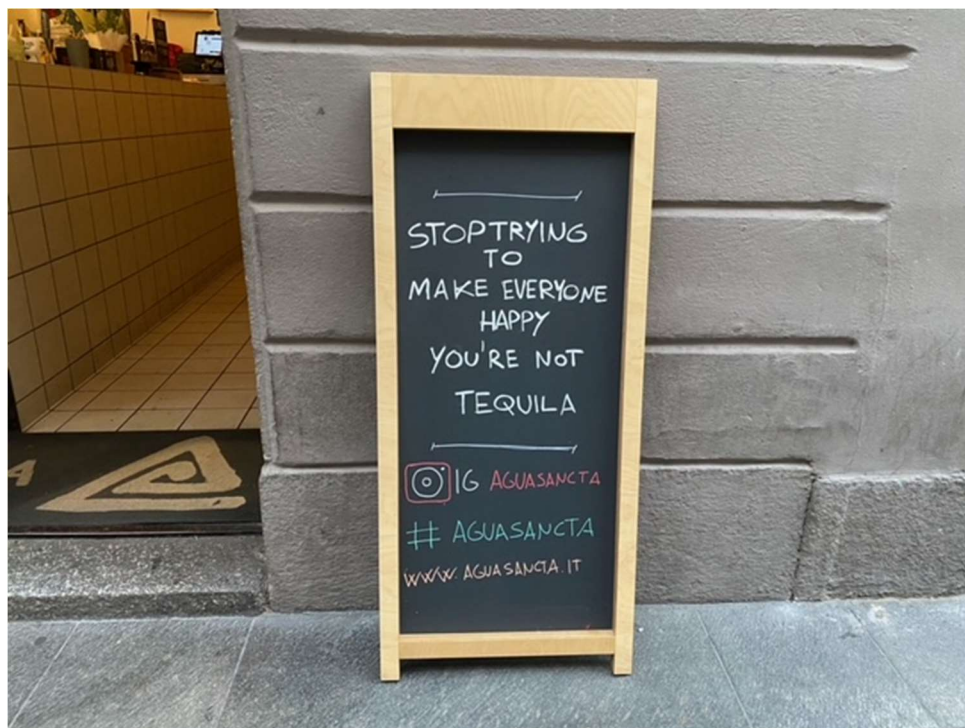 STOP TRYING
TO
MAKE EVERYONE
HAPPY
YOU'RE NOT
TEQUILA
IG AGUASANCTA
# AGUASANCTA
WWW.AGUASANCTA.IT
A